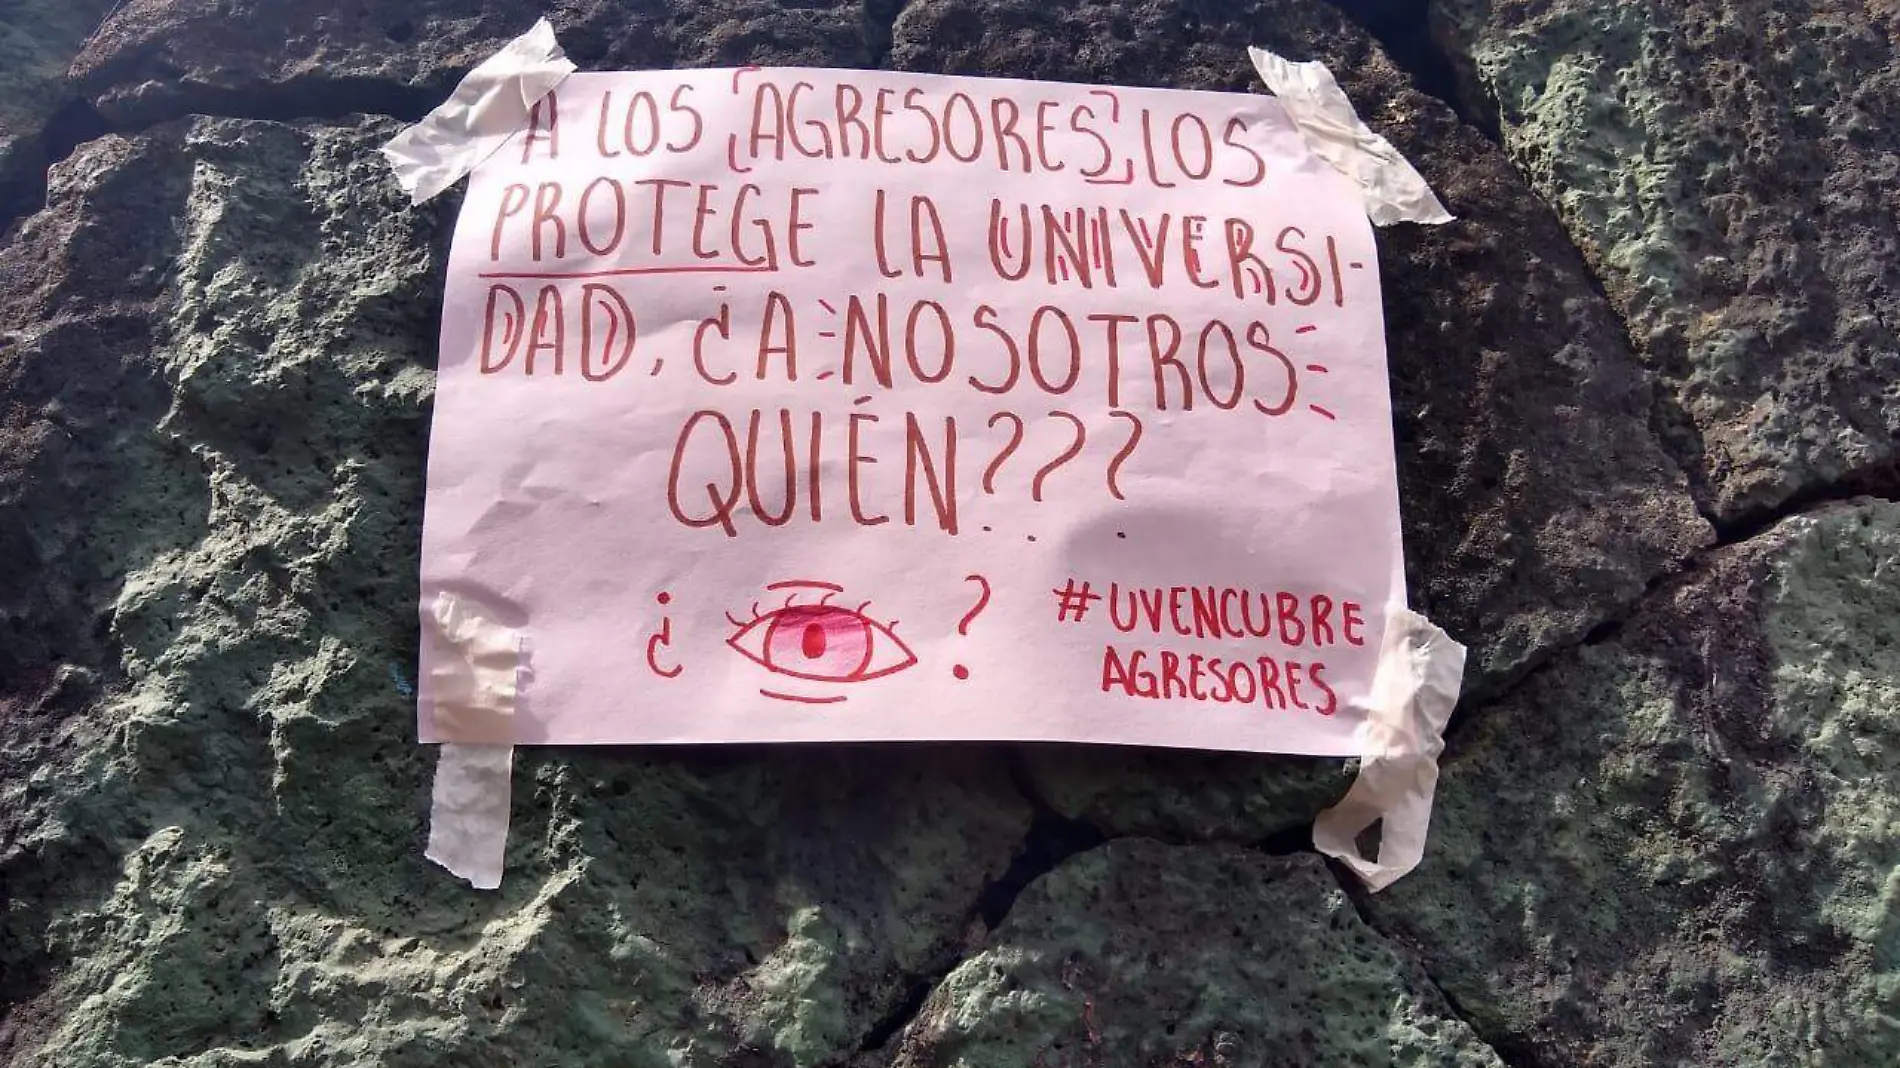 A LOS [AGRESORES], LOS
PROTEGE LA UNIVERSI-
DAD, ¿A NOSOTROS
QUIÉN???
¿ ?
#UVENCUBRE
AGRESORES